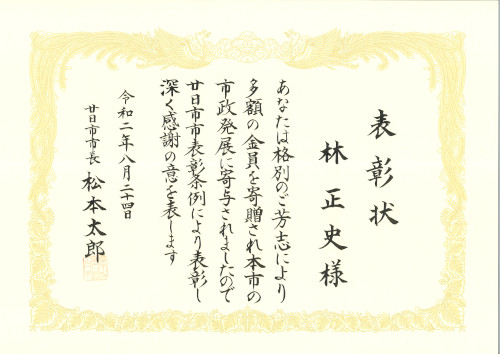 表彰状
林正史様
あなたは格別のご芳志により
多額の金員を寄贈され本市の
市政発展に寄与されましたので
廿日市市表彰条例により表彰し
深く感謝の意を表します
令和二年八月二十四日
廿日市市長 松本太郎